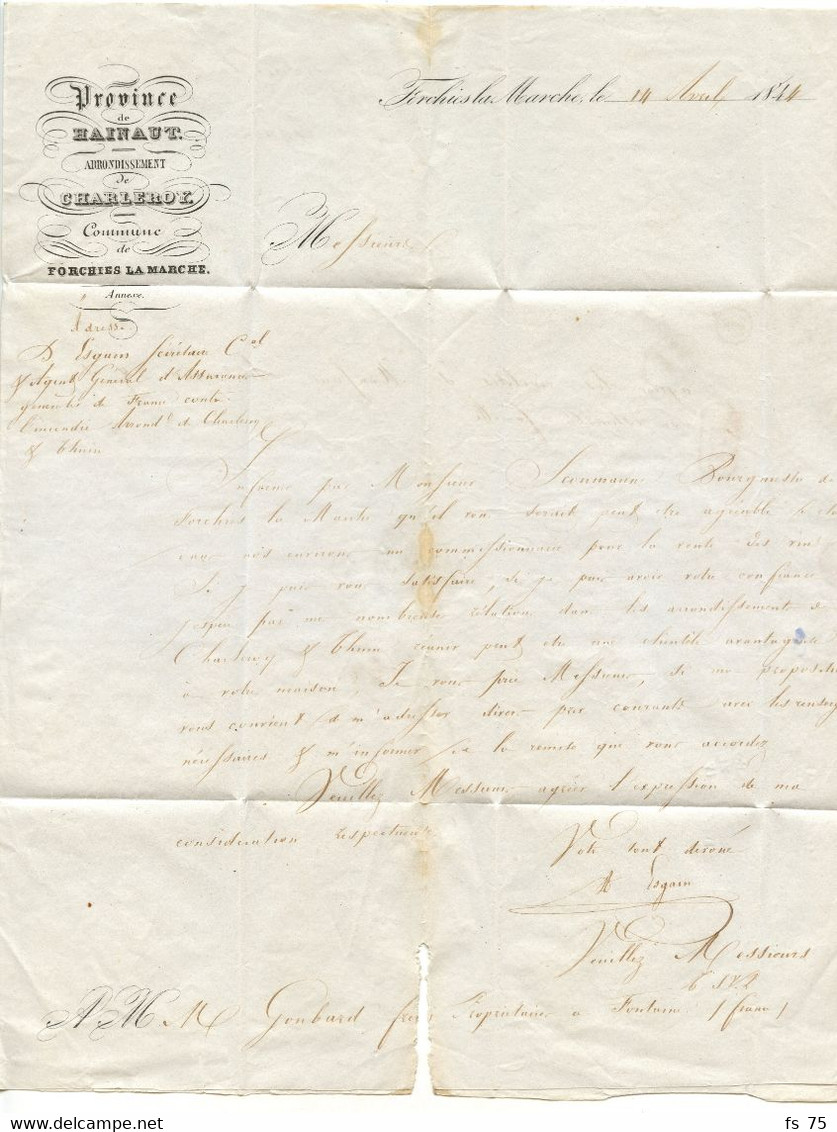 Province
de
HAINAUT.
ARRONDISSEMENT
de
CHARLEROY.
Commune
de
FORCHIES LA MARCHE.
Annexe.
Forchies la Marche, le 14 Avril 1844
Messieurs
Adress.
D Esgain Sécrétaire Cal
& Agent Général d'Assurance
de France contre
l'incendie Arrondt de Charleroy
& Thuin
Informé par Monsieur Bourgmestre de
Forchies la Marche qu'il vous serait peut être agréable
nos environs un commissionnaire pour la vente des vins
Si je puis vous satisfaire, si je puis avoir votre confiance
j'espère par me nombreuse rélations dans les arrondissement de
Charleroy & Thuin réunir peut être une clientèle avantageuse
à votre maison, Je vous prie Messieurs, si ma proposition
vous convient de m'adresser divers prix courants avec les renseig
nécessaires & m'informer de la remise que vous accordez
Veuillez Messieurs agréer l'expression de ma
considération respectueuse
Votre tout dévoué
Esgain
Veuillez Messieurs
S.V.P.
A M. M Goubard frères Propriétaires a Fontaine (france)
fs 75